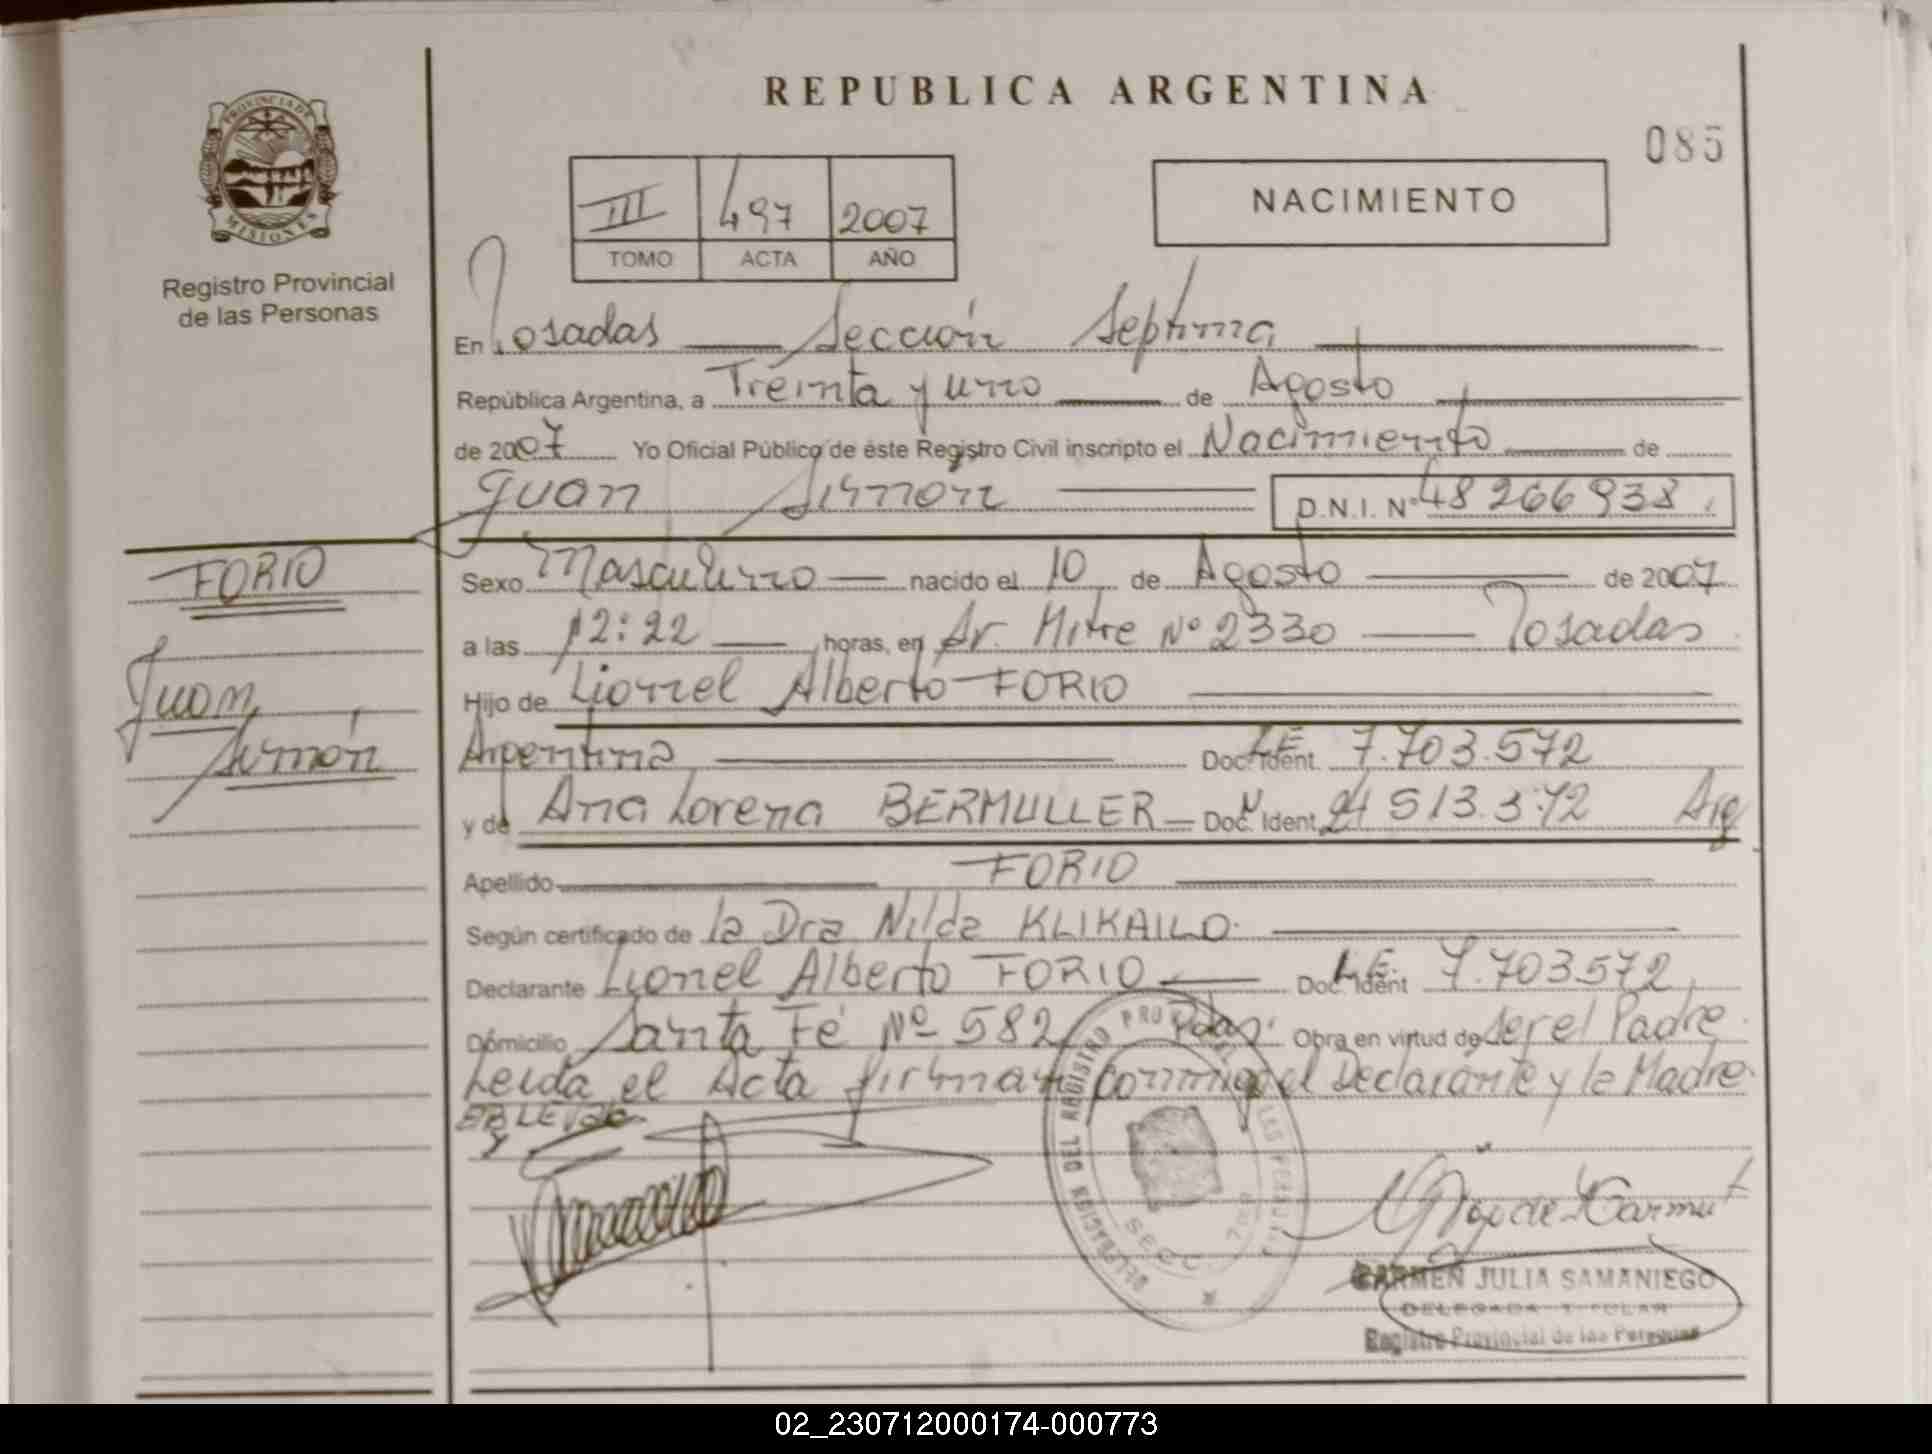 REPUBLICA ARGENTINA
085
PROVINCIA DE
MISIONES
Registro Provincial
de las Personas
III 497 2007
TOMO ACTA AÑO
NACIMIENTO
En Posadas Sección Septima
República Argentina, a Treinta y uno de Agosto
de 2007 Yo Oficial Público de éste Registro Civil inscripto el Nacimiento de
Juan Simón D.N.I. Nº 48266938
FORIO
Juan
Simón
Sexo Masculino nacido el 10 de Agosto de 2007
a las 12:22 horas, en Av. Mitre Nº 2330 Posadas
Hijo de Lionel Alberto FORIO
Argentina Doc. Ident. L.E. 7.703.572
y de Ana Lorena BERMULLER Doc. Ident. 21 513.372 Arg
Apellido FORIO
Según certificado de la Dra Nilda KLIKAILO.
Declarante Lionel Alberto FORIO Doc. Ident L.E. 7.703.572
Domicilio Santa Fé Nº 582 Pdas. Obra en virtud de ser el Padre.
Leída el Acta firman conmigo el Declarante y la Madre.
DELEGACION DEL REGISTRO PROVINCIAL DE LAS PERSONAS
SECC. 7ma
CARMEN JULIA SAMANIEGO
DELEGADA TITULAR
Registro Provincial de las Personas
02_230712000174-000773